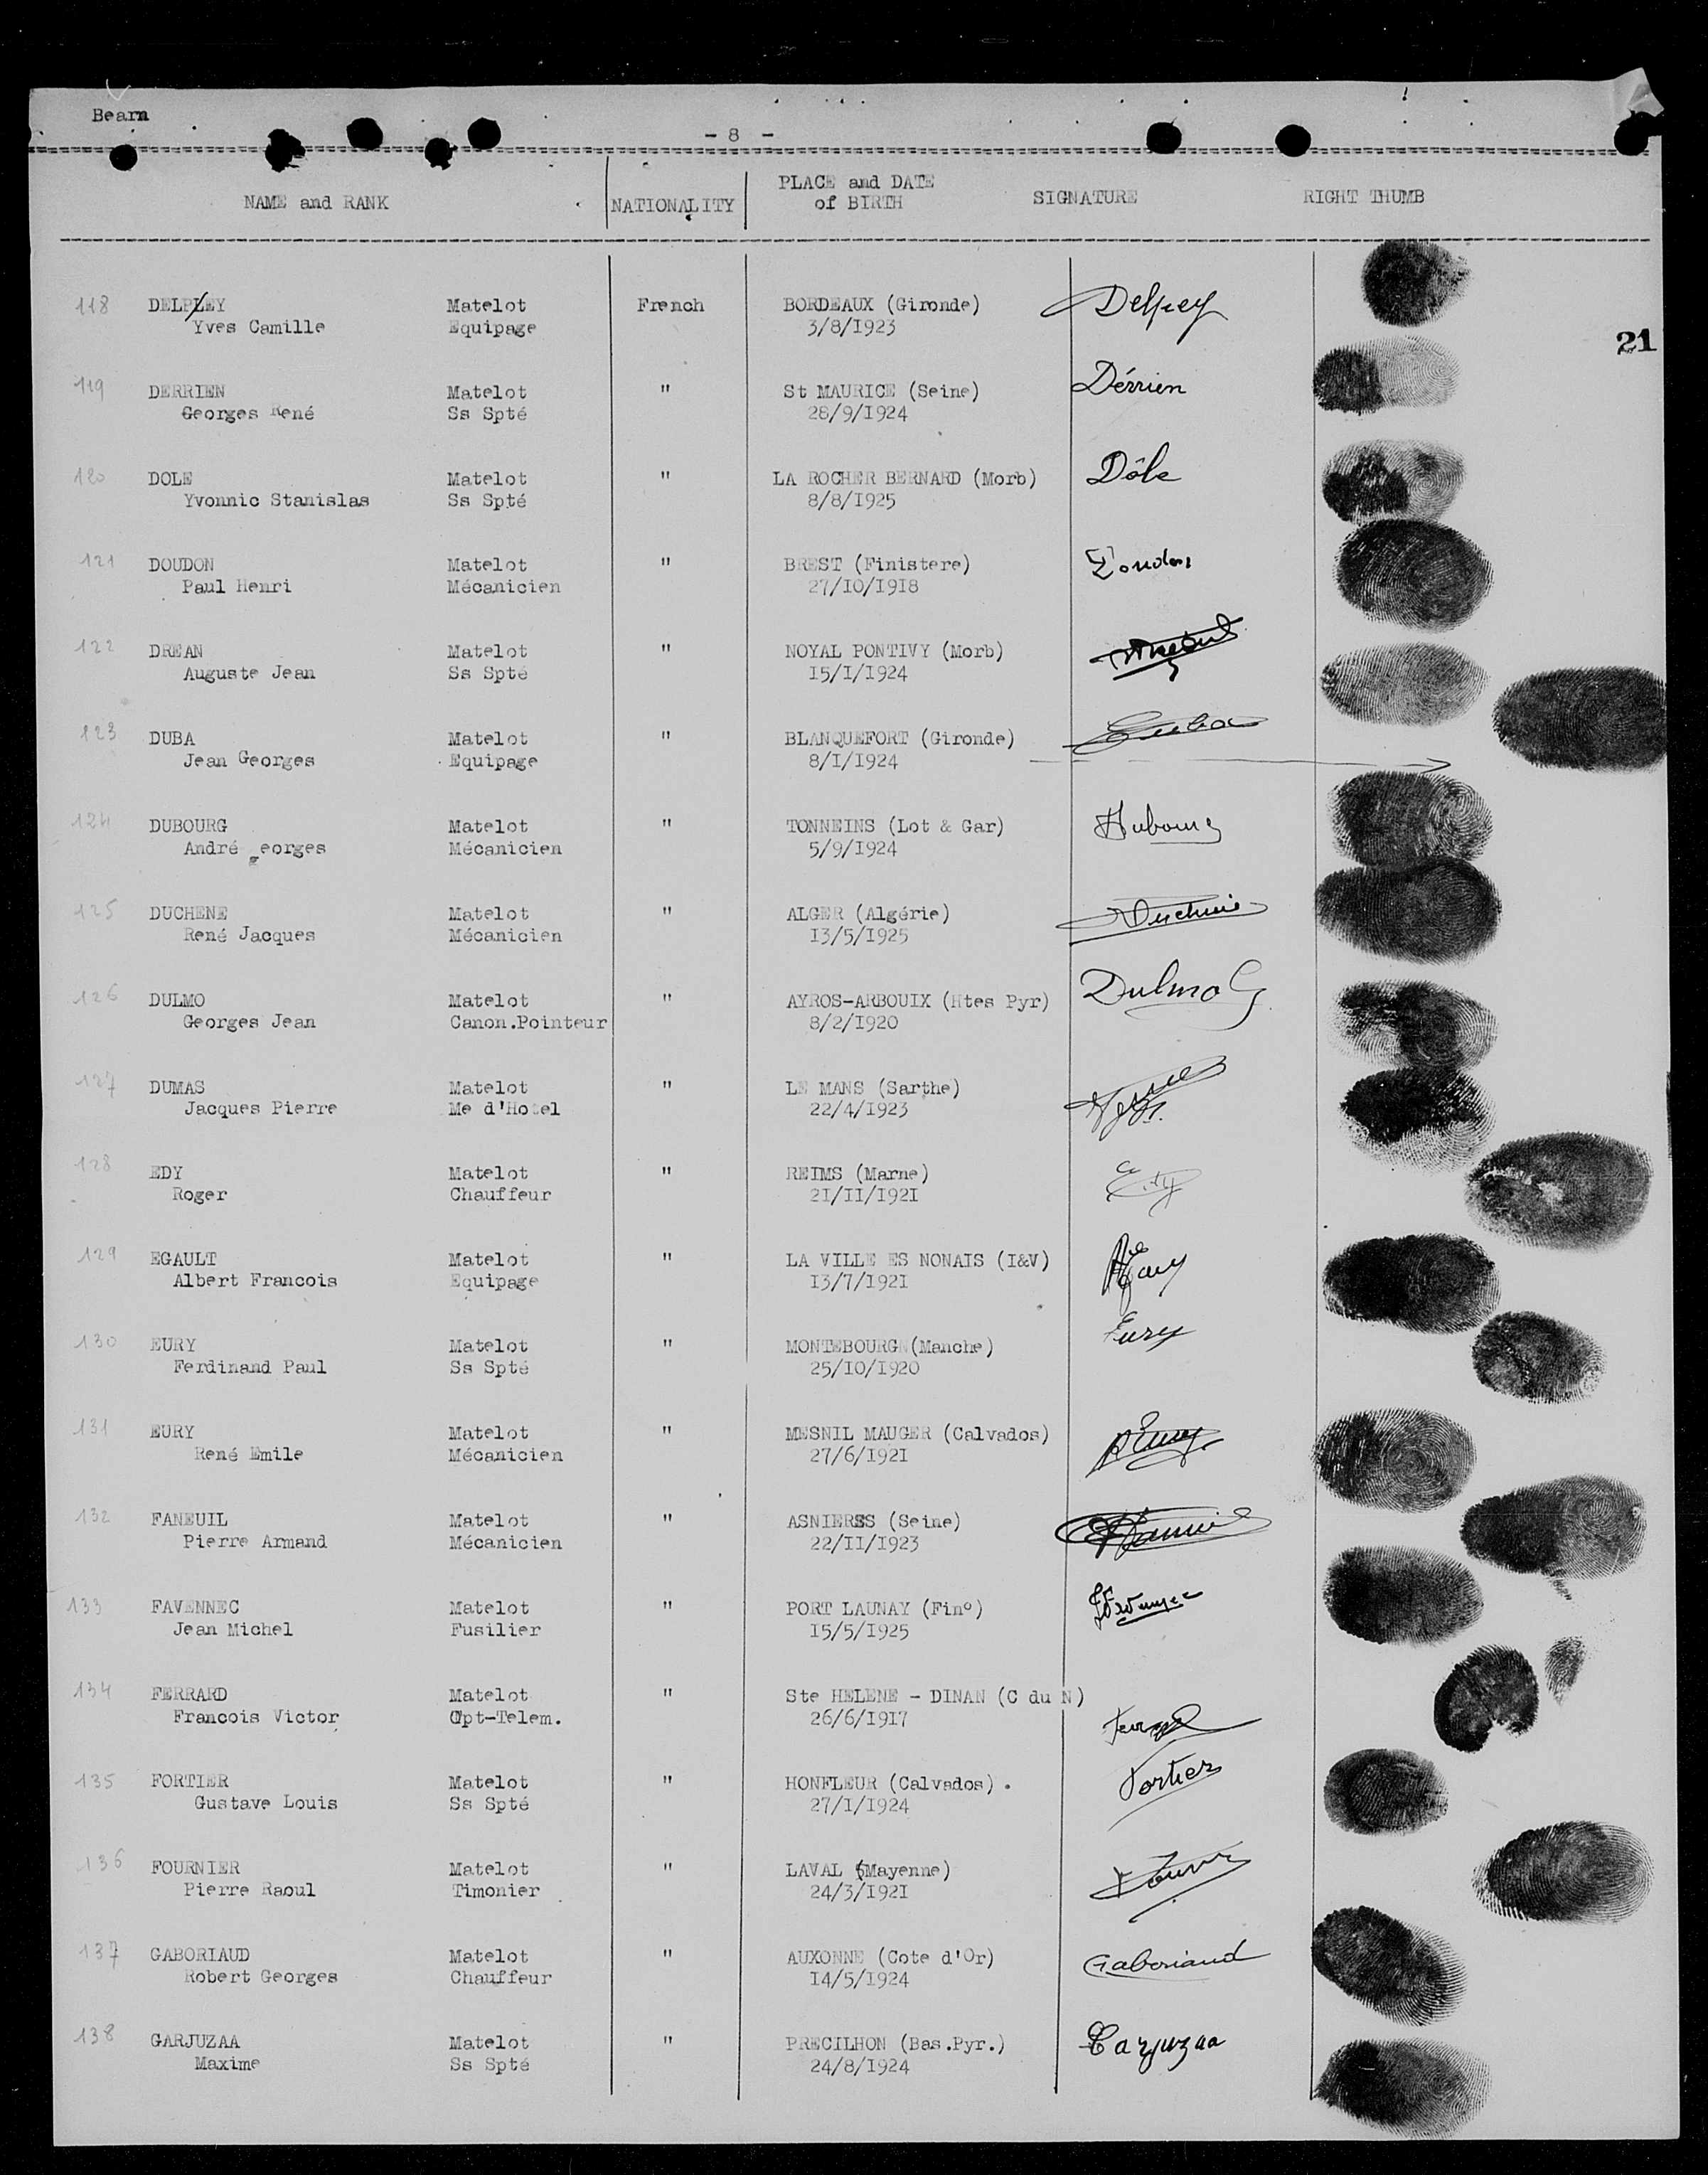 Bearn
- 8 -
NAME and RANK NATIONALITY PLACE and DATE of BIRTH SIGNATURE RIGHT THUMB
118 DELPLEY Matelot French BORDEAUX (Gironde) Delpey
Yves Camille Equipage 3/8/I923
21
119 DERRIEN Matelot " St MAURICE (Seine) Dérrien
Georges René Ss Spté 28/9/I924
120 DOLE Matelot " LA ROCHER BERNARD (Morb) Dôle
Yvonnic Stanislas Ss Spté 8/8/I925
121 DOUDON Matelot " BREST (Finistere) Doudon
Paul Henri Mécanicien 27/IO/I9I8
122 DREAN Matelot " NOYAL PONTIVY (Morb)
Auguste Jean Ss Spté I5/I/I924
123 DUBA Matelot " BLANQUEFORT (Gironde) Duba
Jean Georges Equipage 8/I/I924
124 DUBOURG Matelot " TONNEINS (Lot & Gar) Dubourg
André georges Mécanicien 5/9/I924
125 DUCHENE Matelot " ALGER (Algérie) Duchene
René Jacques Mécanicien I3/5/I925
126 DULMO Matelot " AYROS-ARBOUIX (Htes Pyr) Dulmo G
Georges Jean Canon.Pointeur 8/2/I920
127 DUMAS Matelot " LE MANS (Sarthe)
Jacques Pierre Me d'Hotel 22/4/I923
128 EDY Matelot " REIMS (Marne) Edy
Roger Chauffeur 2I/II/I92I
129 EGAULT Matelot " LA VILLE ES NONAIS (I&V)
Albert Francois Equipage I3/7/I92I
130 EURY Matelot " MONTEBOURG (Manche) Eury
Ferdinand Paul Ss Spté 25/IO/I920
131 EURY Matelot " MESNIL MAUGER (Calvados) R Eury
René Emile Mécanicien 27/6/I92I
132 FANEUIL Matelot " ASNIERES (Seine)
Pierre Armand Mécanicien 22/II/I923
133 FAVENNEC Matelot " PORT LAUNAY (Finº)
Jean Michel Fusilier I5/5/I925
134 FERRARD Matelot " Ste HELENE - DINAN (C du N)
Francois Victor Opt-Telem. 26/6/I9I7
135 FORTIER Matelot " HONFLEUR (Calvados). Fortier
Gustave Louis Ss Spté 27/I/I924
136 FOURNIER Matelot " LAVAL (Mayenne)
Pierre Raoul Timonier 24/3/I92I
137 GABORIAUD Matelot " AUXONNE (Cote d'Or) Gaboriaud
Robert Georges Chauffeur I4/5/I924
138 GARJUZAA Matelot " PRECILHON (Bas.Pyr.) Garjuzaa
Maxime Ss Spté 24/8/I924